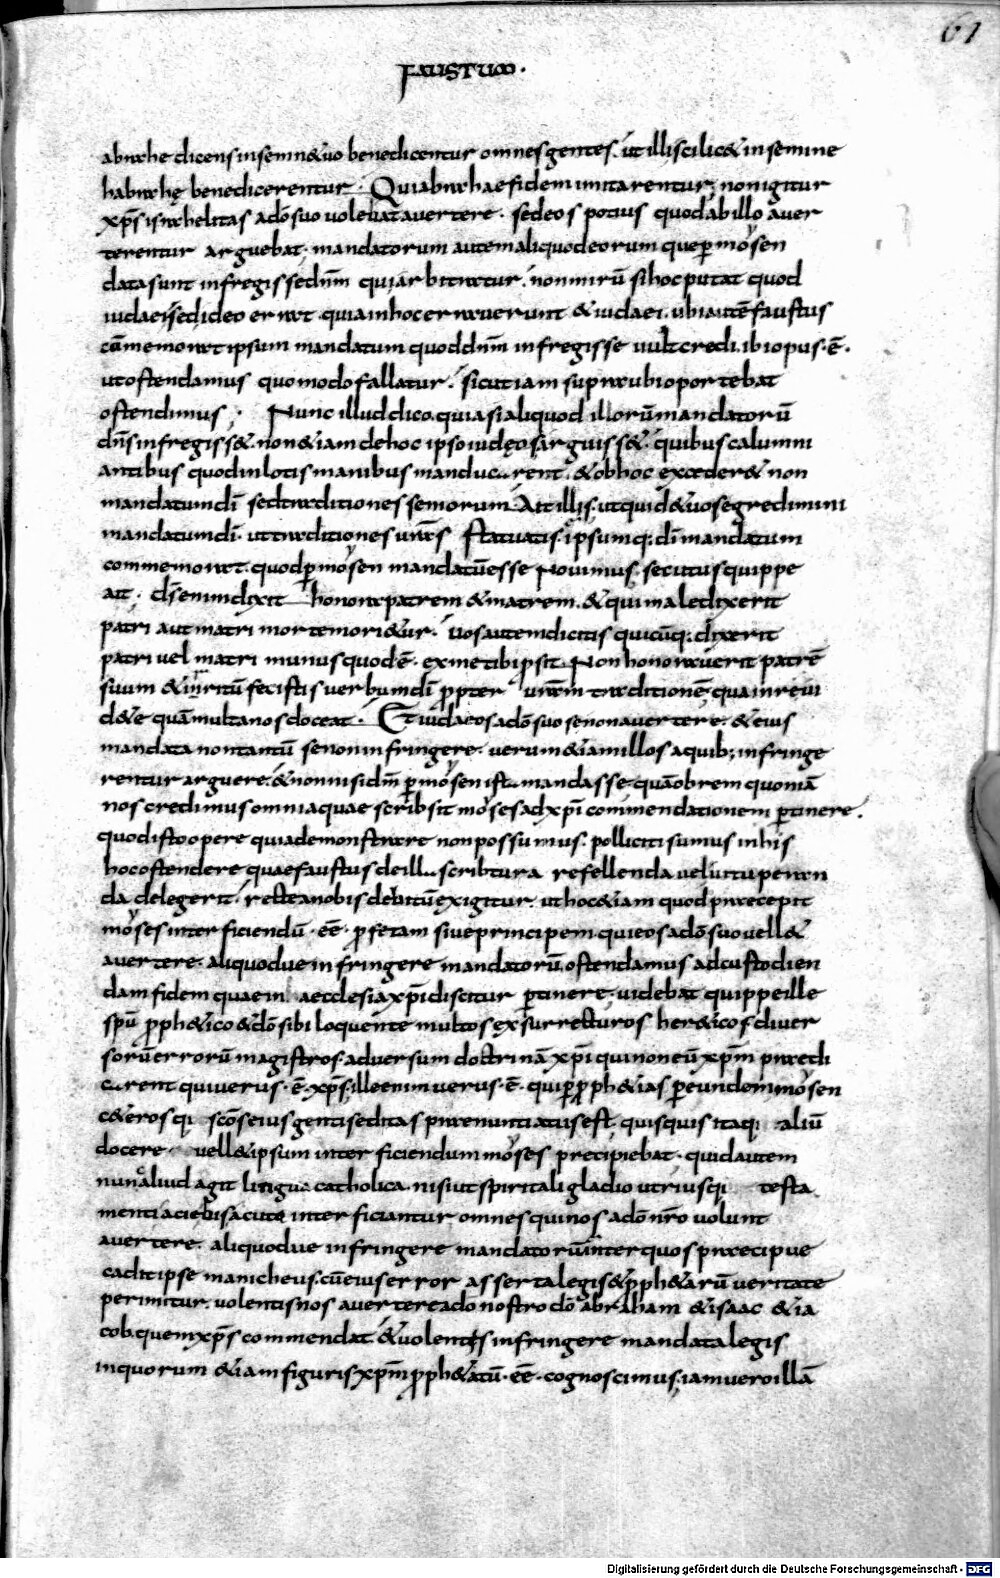 61
FAUSTUM·
abrahe dicens in semine tuo benedicentur omnes gentes· ut illi scilic& in semine
habrahę benedicerentur· Qui abrahae fidem imitarentur; non igitur
xp̄s israhelitas a dō suo volebat avertere· sed eos potius quod ab illo aver
terentur arguebat· mandatorum autem aliquod eorum que per moysen
data sunt infregisse dn̄m qui arbitratur· non mirū si hoc putat quod
iudaei sed ideo errat quia in hoc erraverunt & iudaei· ubi autē faustus
cōmemorat ipsum mandatum quod dn̄m infregisse vult credi· ibi opus· ē·
ut ostendamus quomodo fallatur· sicut iam supra ubi oportebat
ostendimus; Nunc illud dico quia si aliquod illorū mandatorū
dn̄s infregiss&· non &iam de hoc ipso iudęos arguiss&· quibus calumni
antibus quod inlotis manibus manduc rent· & ob hoc exceder& non
mandatum dī sed traditiones seniorum Ait illis· ut quid & vos egredimini
mandatum dī· ut traditiones vr̄as statuatis· ipsumq; dī mandatum
commemorat· quod p moysen mandatū esse novimus· secutus quippe
ait· ds̄ enim dixit honora patrem & matrem· & qui maledixerit
patri aut matri morte mori&ur· vos autem dicitis quicūq; dixerit
patri vel matri munus quod ē· ex me tibi p sit Non honoraverit patrē
suum & inritū fecistis verbum dī ppter vr̄am traditionē quam rei
d&e quā multa nos doceat· Et iudaeos a dō suo se non avertere· & eius
mandata non tantū se non infringere· verum &iam illos a quib; infringe
rentur arguere· & non nisi dm̄ p moysen ist mandasse quāobrem quoniā
nos credimus omnia quae scribsit moyses ad xp̄i commendationem ptinere·
quod isto opere quia demonstrare non possumus· polliciti sumus in his
hoc ostendere quae faustus de ill scribtura refellenda vel vitupera
da delegerit· recte a nobis debitū exigitur· ut hoc &iam quod praecepit
moyses interficiendū· eē· profetam sive principem qui eos a dō suo vell&
avertere· aliquodve infringere mandatorū ostendamus ad custodien
dam fidem quae in aecclesia xp̄i discitur ptinere· videbat quippe ille
spū proph&ico & dō sibi loquente multos exsurrecturos her&icos diver
sorū errorū magistros· adversum doctrinā xp̄i qui non eū xp̄m praedi
c rent qui verus· ē· xp̄s· ille enim verus· ē· qui p proph&ias p eundem moysen
c&erosq; scōs eius gentis editas praenuntiatus est quisquis itaq; aliū
docere vell& ipsum interficiendum moyses precipiebat· quid autem
nunc aliud agit lingua catholica· nisi ut spiritali gladio utriusq; testa
menti acie bis acuta interficiantur omnes qui nos a dō nr̄o volunt
avertere· aliquodve infringere mandatorū inter quos praecipue
cadit ipse manicheus· cū eius error asserta legis & proph&arū veritate
perimitur· volentis nos avertere a dō nostro dō abraham & isaac & ia
cob· quem xp̄s commendat & volentis infringere mandata legis
in quorum &iam figuris xp̄m proph&atū· eē· cognoscimus; iam vero illā
Digitalisierung gefördert durch die Deutsche Forschungsgemeinschaft - DFG